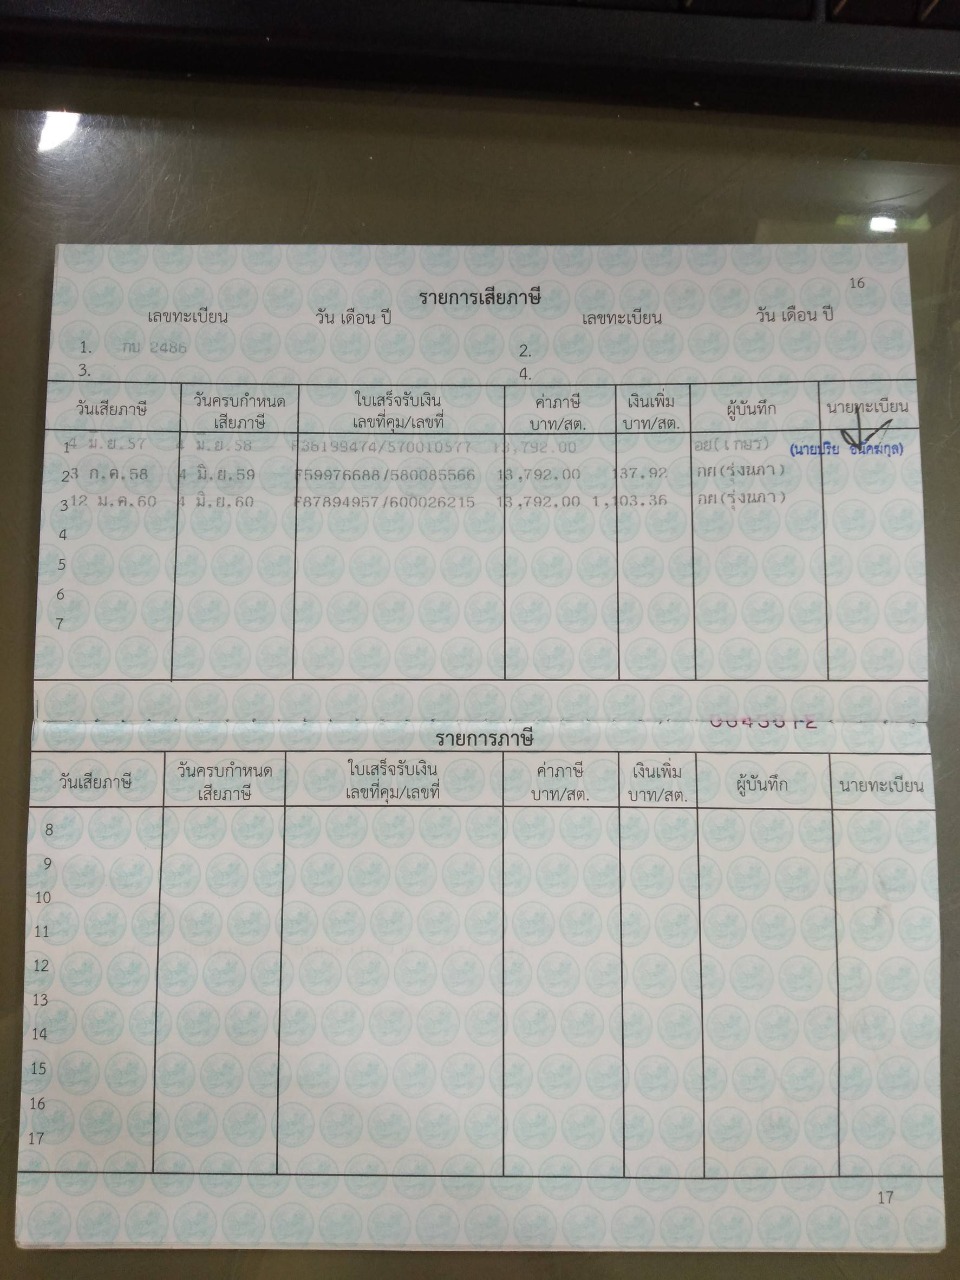 16
รายการเสียภาษี
เลขทะเบียน วัน เดือน ปี เลขทะเบียน วัน เดือน ปี
1. กบ 2486 2.
3. 4.
วันเสียภาษี วันครบกำหนด เสียภาษี ใบเสร็จรับเงิน เลขที่คุม/เลขที่ ค่าภาษี บาท/สต. เงินเพิ่ม บาท/สต. ผู้บันทึก นายทะเบียน
1 4 มิ.ย.57 4 มิ.ย.58 F36199474/570010577 13,792.00 อย(เกษร)
2 3 ก.ค.58 4 มิ.ย.59 F59976688/580085566 13,792.00 137.92 กย(รุ่งนภา)
3 12 ม.ค.60 4 มิ.ย.60 F87894957/600026215 13,792.00 1,103.36 กย(รุ่งนภา)
4
5
6
7
รายการภาษี
วันเสียภาษี วันครบกำหนด เสียภาษี ใบเสร็จรับเงิน เลขที่คุม/เลขที่ ค่าภาษี บาท/สต. เงินเพิ่ม บาท/สต. ผู้บันทึก นายทะเบียน
8
9
10
11
12
13
14
15
16
17
17